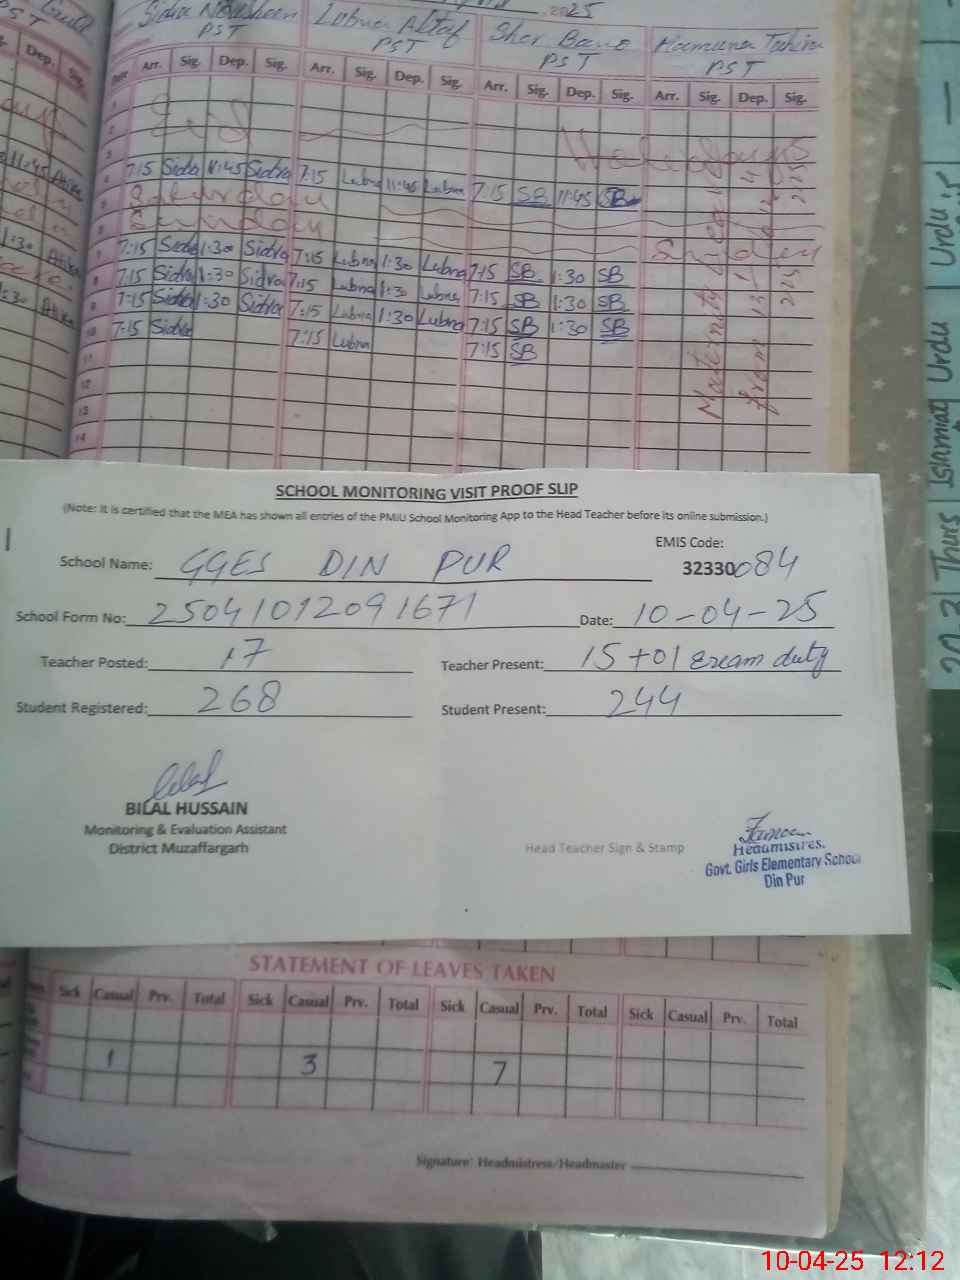 2025
Sidra Nousheen Lubna Altaf Sher Bano Humaira Tashira
PST PST PST PST
Dep. Sig. Date Arr. Sig. Dep. Sig. Arr. Sig. Dep. Sig. Arr. Sig. Dep. Sig. Arr. Sig. Dep. Sig.
1 Eid Holidays
2
3
4 7:15 Sidra 11:45 Sidra 7:15 Lubna 11:45 Lubna 7:15 SB 11:45 SB
5 Saturday
6 Sunday Sunday
7 7:15 Sidra 1:30 Sidra 7:15 Lubna 1:30 Lubna 7:15 SB 1:30 SB
8 7:15 Sidra 1:30 Sidra 7:15 Lubna 1:30 Lubna 7:15 SB 1:30 SB
9 7:15 Sidra 1:30 Sidra 7:15 Lubna 1:30 Lubna 7:15 SB 1:30 SB
10 7:15 Sidra 7:15 Lubna 7:15 SB
11
12
13
14
Maternity
from
11:45 Atika
1:30 Atika
Islamiat Urdu Urdu
Thurs
SCHOOL MONITORING VISIT PROOF SLIP
(Note: It is certified that the MEA has shown all entries of the PMIU School Monitoring App to the Head Teacher before its online submission.)
EMIS Code:
School Name: GGES DIN PUR 32330084
School Form No: 25041012091671 Date: 10-04-25
Teacher Posted: 17 Teacher Present: 15+01 Exam duty
Student Registered: 268 Student Present: 244
BILAL HUSSAIN
Monitoring & Evaluation Assistant
District Muzaffargarh
Head Teacher Sign & Stamp
Headmistres.
Govt. Girls Elementary School
Din Pur
STATEMENT OF LEAVES TAKEN
Sick Casual Prv. Total Sick Casual Prv. Total Sick Casual Prv. Total Sick Casual Prv. Total
1 3 7
Signature: Headmistress/Headmaster
10-04-25 12:12